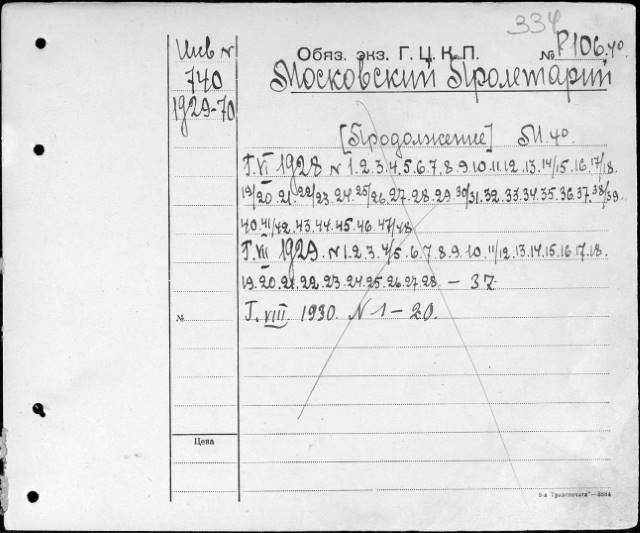 334
Инв №
740
1929-70
Обяз. экз. Г. Ц. К. П.
№ Р106.40
Московский Пролетарий
[Продолжение] М. 4°
Г. VI 1928 N 1.2.3.4.5.6.7.8.9.10.11.12.13.14/15.16.17/18.
19/20.21.22/23.24.25/26.27.28.29.30/31.32.33.34.35.36.37.38/39.
40.41/42.43.44.45.46.47/48
Г. VII 1929. N 1.2.3.4/5.6.7.8.9.10.11/12.13.14.15.16.17.18.
19.20.21.22.23.24.25.26.27.28. – 37
№ Г. VIII 1930. N 1 – 20.
Цена